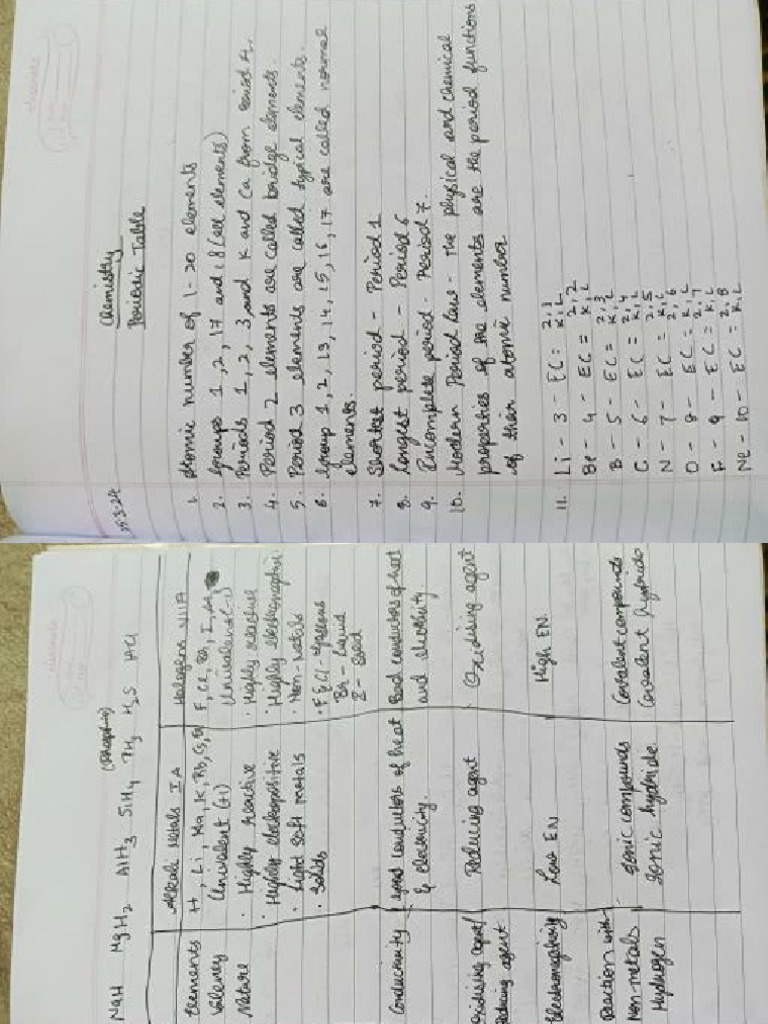 25-3-24
Chemistry
Periodic Table
1. Atomic number of 1-20 elements
2. Groups 1, 2, 17 and 18 (all elements)
3. Periods 1, 2, 3, and K and Ca from period 4.
4. Period 2 elements are called bridge elements.
5. Period 3 elements are called typical elements.
6. Group 1, 2, 13, 14, 15, 16, 17 are called normal
elements.
7. Shortest period - Period 1
8. Longest period - Period 6
9. Incomplete period - Period 7.
10. Modern Period law - the physical and chemical
properties of the elements are the period functions
of their atomic number.
11. Li - 3 - EC = 2,1 K,L
Be - 4 - EC = 2,2 K,L
B - 5 - EC = 2,3 K,L
C - 6 - EC = 2,4 K,L
N - 7 - EC = 2,5 K,L
O - 8 - EC = 2,6 K,L
F - 9 - EC = 2,7 K,L
Ne - 10 - EC = 2,8 K,L
NaH MgH2 AlH3 SiH4 PH3 H2S HCl
Alkali Metals IA Halogens VIIA
Elements H, Li, Na, K, Rb, Cs, Fr F, Cl, Br, I, At
Valency Univalent (+1) Univalent (-1)
Nature · Highly reactive · Highly reactive
· Highly electropositive · Highly electronegative
· Light soft metals · Non-Metals
· Solids · F & Cl - gaseous
Br - Liquid
I - Solid
Conductivity Good conductors of heat Bad conductors of heat
& electricity. and electricity.
Oxidising agent/ Reducing agent Oxidising agent
Reducing agent
Electronegativity Low EN High EN
Reaction with
Non-metals Ionic compounds Covalent compounds
Hydrogen Ionic hydride. Covalent hydride